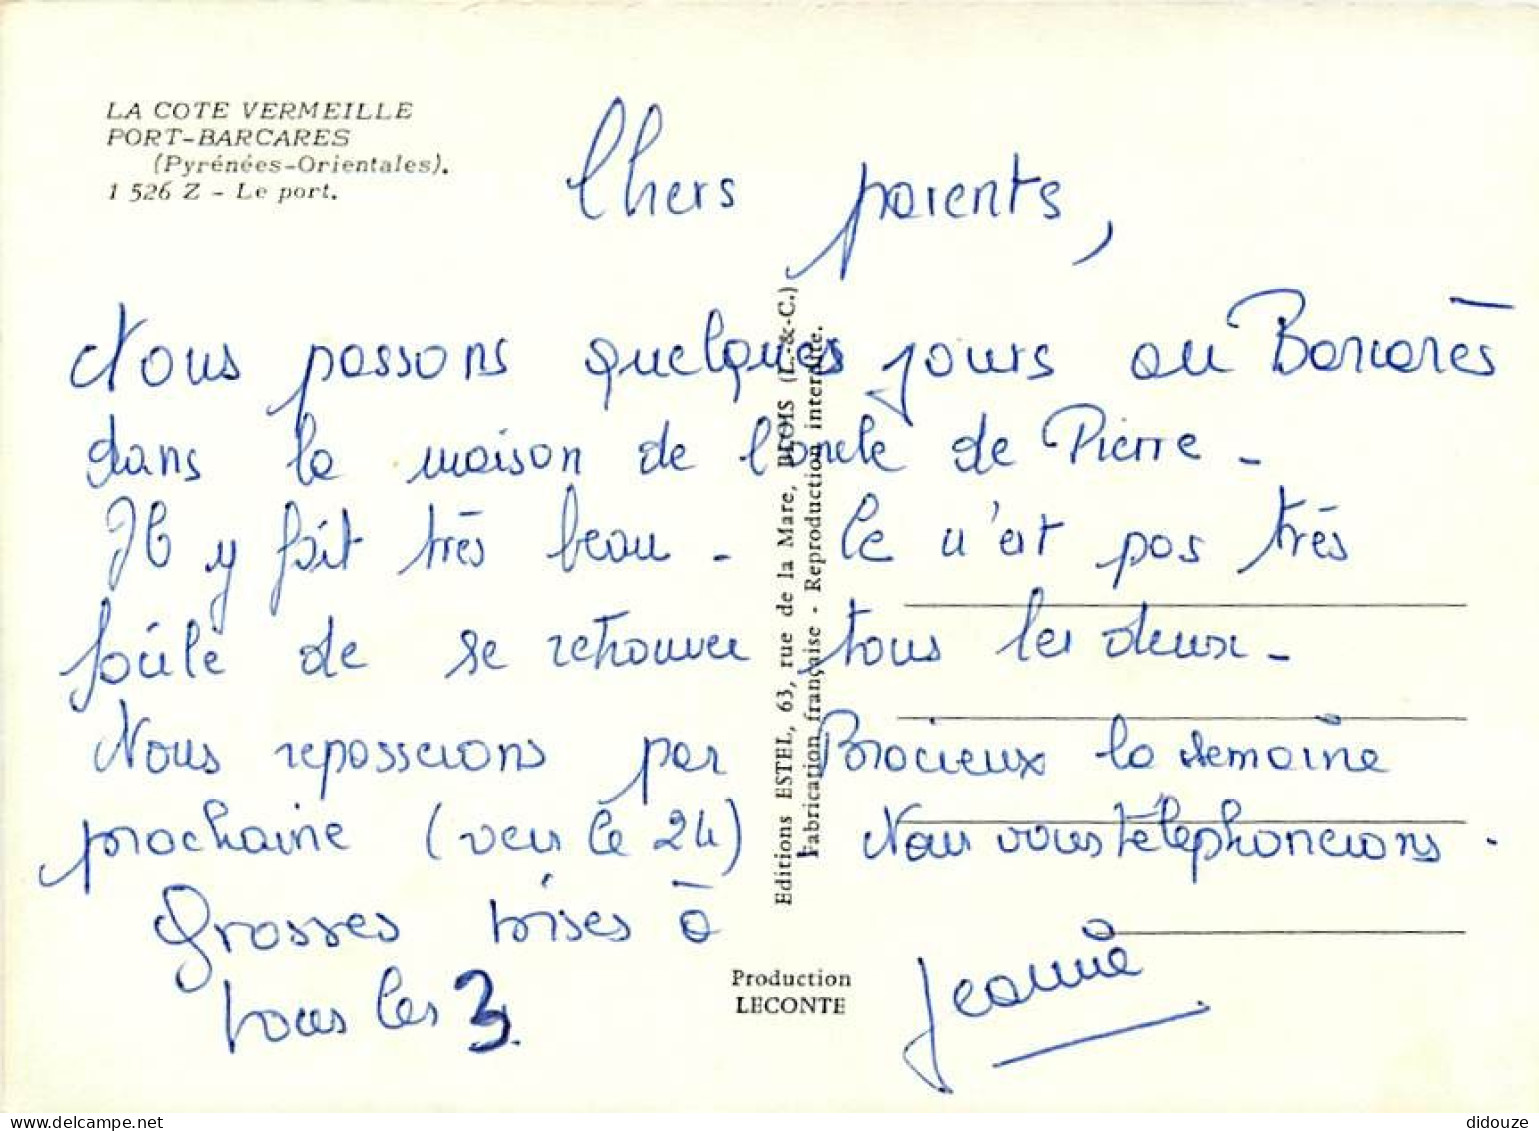 LA COTE VERMEILLE
PORT-BARCARES
(Pyrénées-Orientales).
1 526 Z - Le port.
Chers parents,
Nous passons quelques jours au Barcarès
dans la maison de l'oncle de Pierre -
Il y fait très beau - Ce n'est pas très
facile de se retrouver tous les deux -
Nous repasserons par Bracieux la semaine
prochaine (vers le 24) Nous vous téléphonerons.
Grosses bises à
tous les 3.
Jeannie
Editions ESTEL, 63, rue de la Mare, BLOIS (L.-&-C.)
Fabrication française - Reproduction interdite.
Production
LECONTE
delcampe.net
didouze